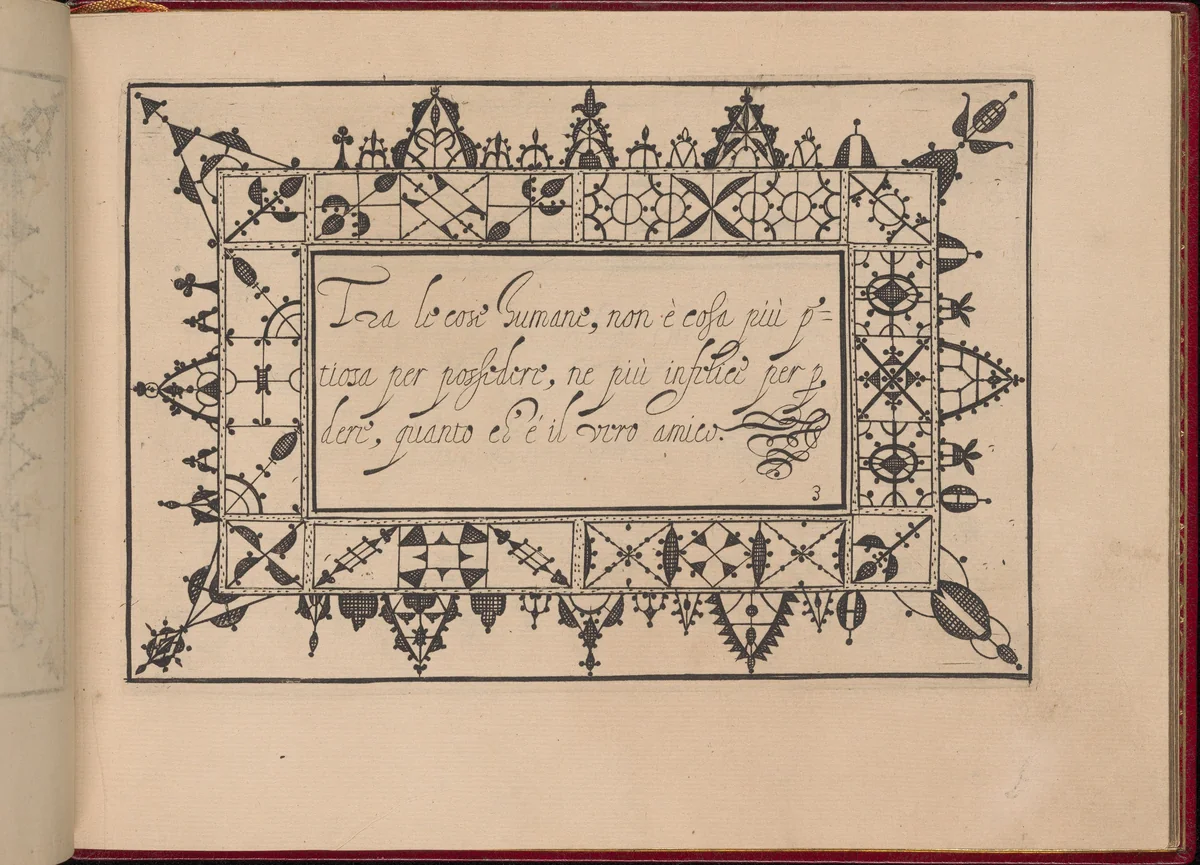 Tra le cose humane, non è cosa più p̄=
tiosa per possedere, ne più infelice per p̱
dere, quanto ch' é il vero amico.
3